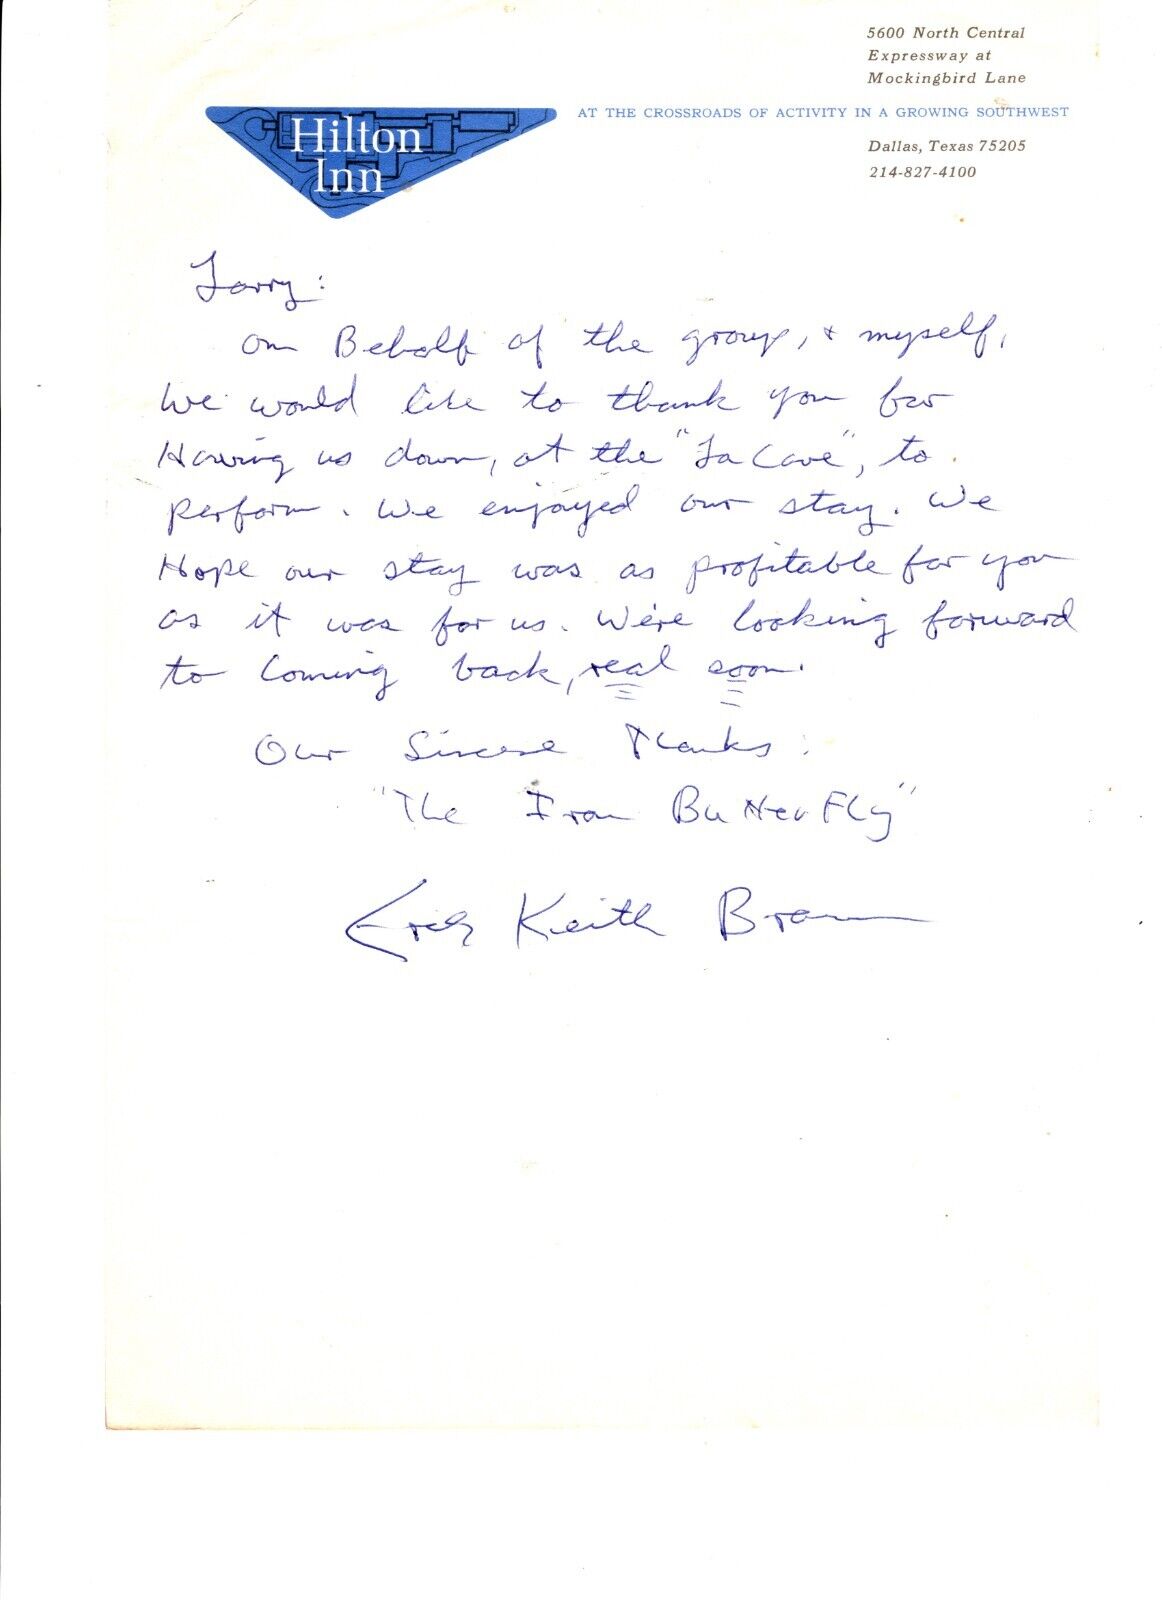 5600 North Central
Expressway at
Mockingbird Lane
Hilton
Inn
AT THE CROSSROADS OF ACTIVITY IN A GROWING SOUTHWEST
Dallas, Texas 75205
214-827-4100
Larry:
On Behalf of the group, + myself,
We would like to thank you for
Having us down, at the "La Cave", to
perform. We enjoyed our stay. We
Hope our stay was as profitable for you
as it was for us. We're looking forward
to coming back, real soon.
Our Sincere Thanks:
"The Iron ButterFly"
Erick Keith Brann